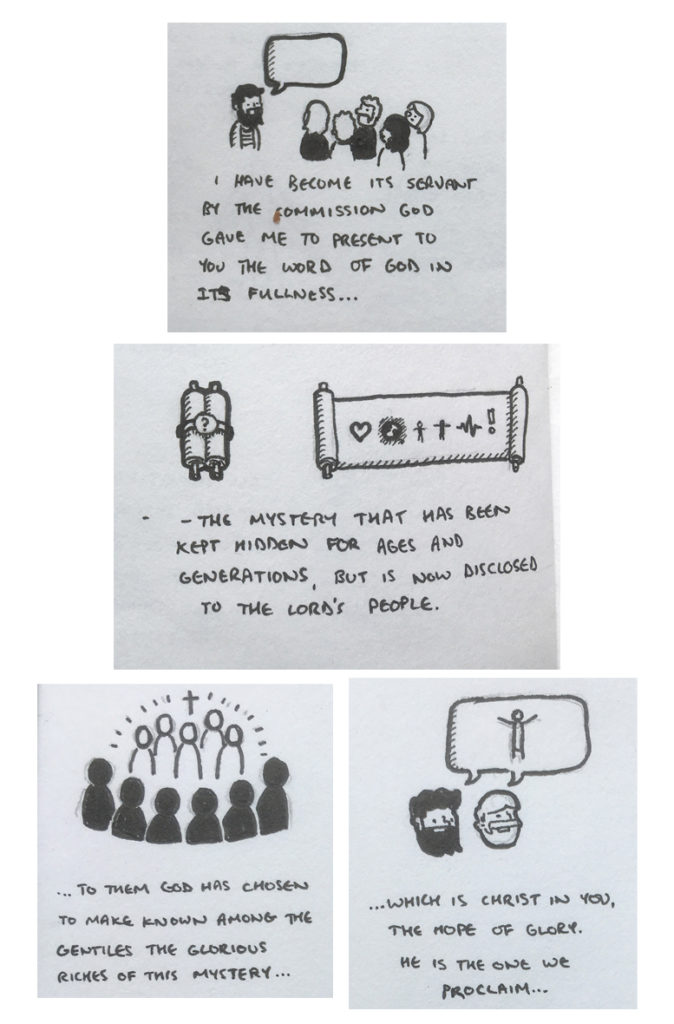 I HAVE BECOME ITS SERVANT
BY THE COMMISSION GOD
GAVE ME TO PRESENT TO
YOU THE WORD OF GOD IN
ITS FULLNESS...
?
!
- THE MYSTERY THAT HAS BEEN
KEPT HIDDEN FOR AGES AND
GENERATIONS, BUT IS NOW DISCLOSED
TO THE LORD'S PEOPLE.
...TO THEM GOD HAS CHOSEN
TO MAKE KNOWN AMONG THE
GENTILES THE GLORIOUS
RICHES OF THIS MYSTERY...
...WHICH IS CHRIST IN YOU,
THE HOPE OF GLORY.
HE IS THE ONE WE
PROCLAIM...